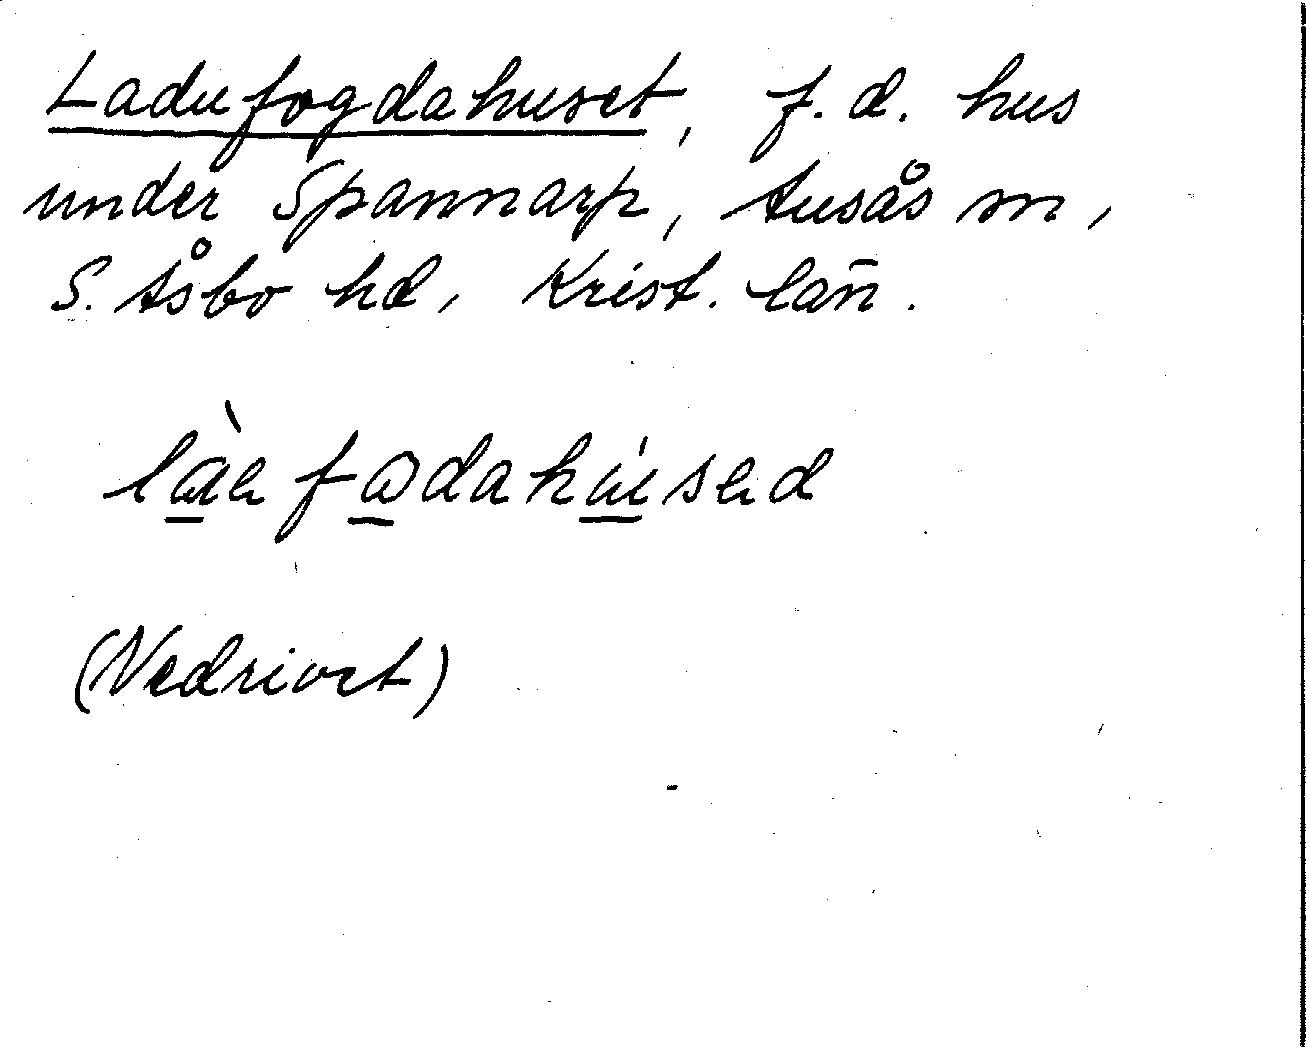 Ladufogdahuset, f.d. hus
under Spannarp, Ausås sn,
S. Åsbo hd, Krist. län.
(Nedrivet)